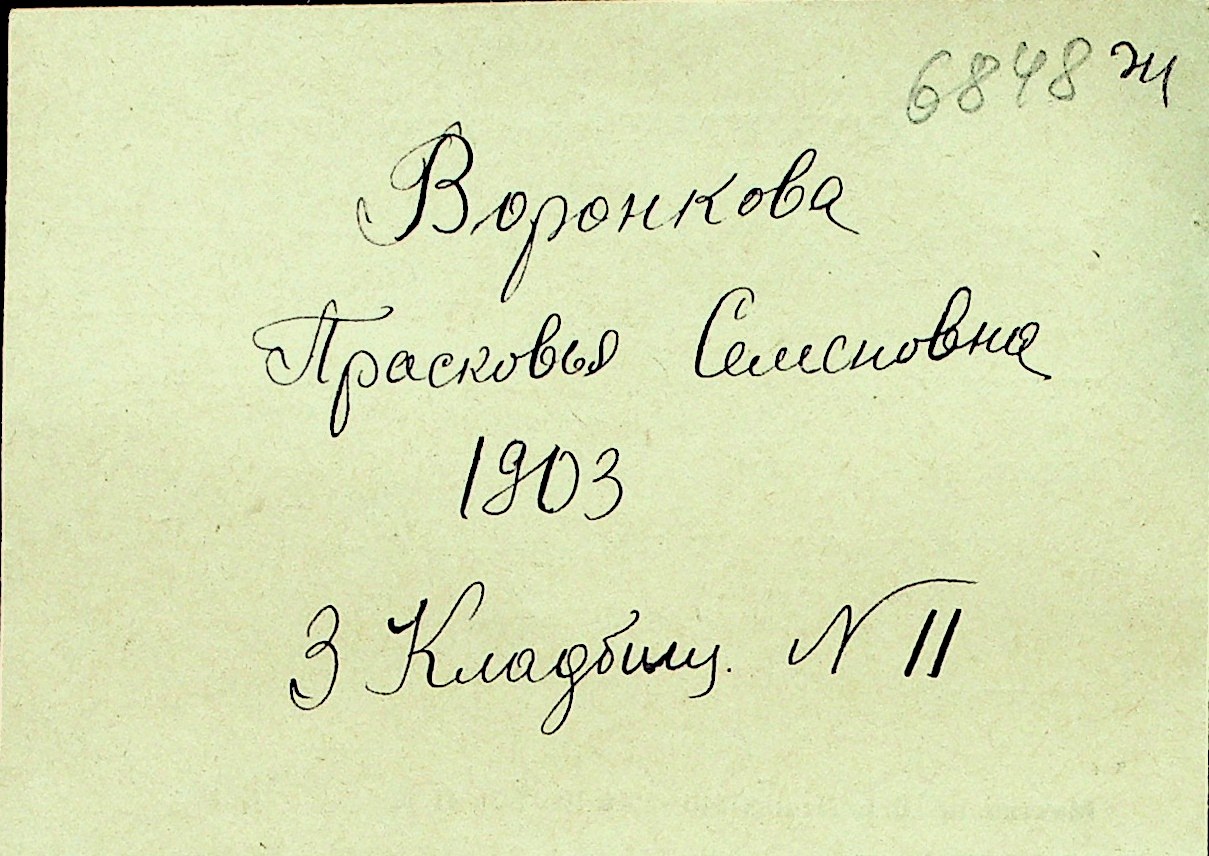 6848 ж
Воронкова
Прасковья Семеновна
1903
3 Кладбищ. N 11